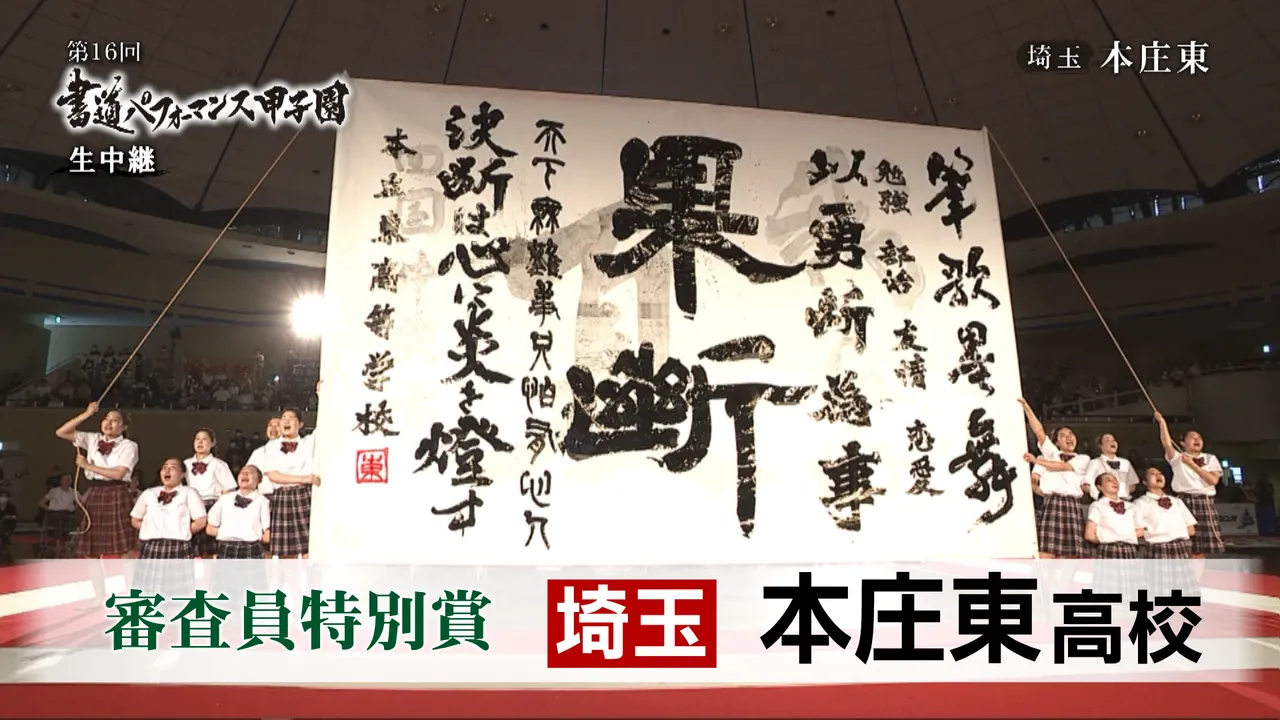 第16回
書道パフォーマンス甲子園
生中継
埼玉 本庄東
筆歌墨舞
勉強 部活 友情 恋愛
以勇断為事
果断
天下無難事只怕有心人
決断は心に炎を燈す
本庄東高等学校
東
審査員特別賞
埼玉
本庄東高校